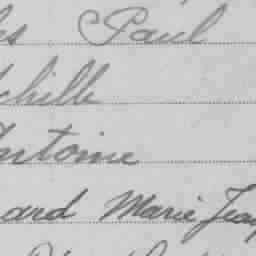 es Paul
chille
ntoine
ard Marie Jean